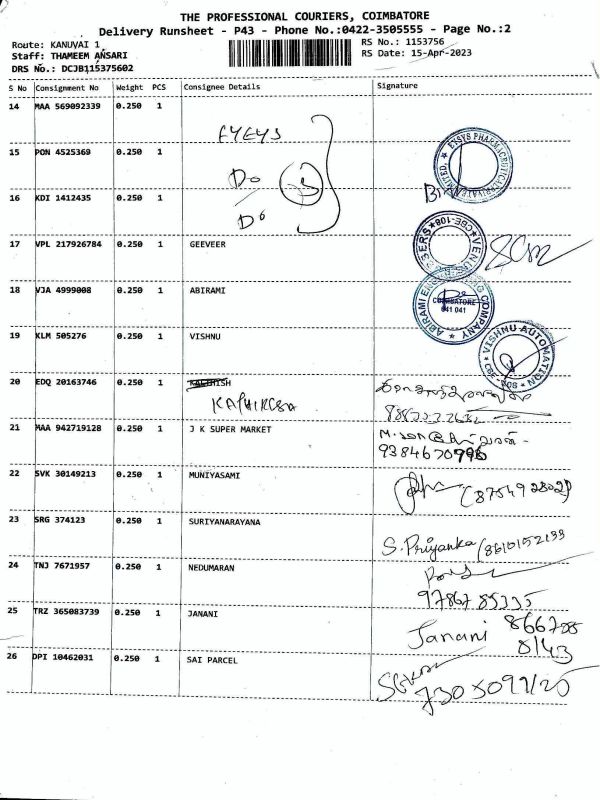 THE PROFESSIONAL COURIERS, COIMBATORE
Delivery Runsheet - P43 - Phone No.:0422-3505555 - Page No.:2
Route: KANUVAI 1
Staff: THAMEEM ANSARI
DRS No.: DCJB115375602
RS No.: 1153756
RS Date: 15-Apr-2023
S No Consignment No Weight PCS Consignee Details Signature
14 MAA 569092339 0.250 1
EYEYS
15 PON 4525369 0.250 1
Do
ETSYS PHARMACEUTICAL
LIMITED.
16 KDI 1412435 0.250 1
Do
17 VPL 217926784 0.250 1 GEEVEER
CBE-108
18 VJA 4999008 0.250 1 ABIRAMI
ABIRAMI COMPANY
COIMBATORE
641 041
19 KLM 505276 0.250 1 VISHNU
VISHNU AUTOMATION
20 EDQ 20163746 0.250 1
21 MAA 942719128 0.250 1 J K SUPER MARKET
9384670996
22 SVK 30149213 0.250 1 MUNIYASAMI
23 SRG 374123 0.250 1 SURIYANARAYANA
S. Priyanka / 8610152133
24 TNJ 7671957 0.250 1 NEDUMARAN
9786785335
25 TRZ 365083739 0.250 1 JANANI
Janani
8143
26 DPI 10462031 0.250 1 SAI PARCEL